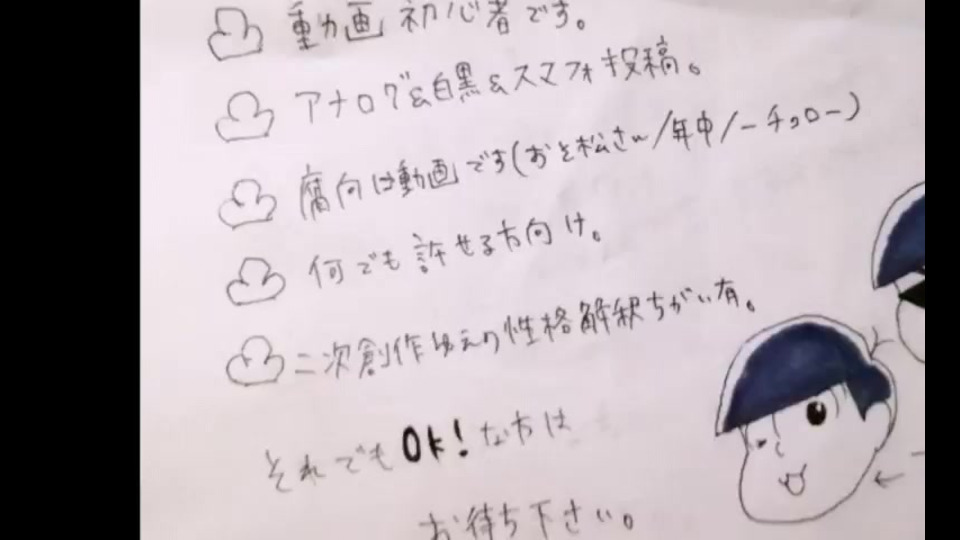 動画初心者です。
アナログ&白黒&スマフォ投稿。
腐向け動画です(おそ松さん/年中/一チョロー)
何でも許せる方向け。
二次創作ゆえの性格解釈ちがい有。
それでもOK!な方は
お待ち下さい。